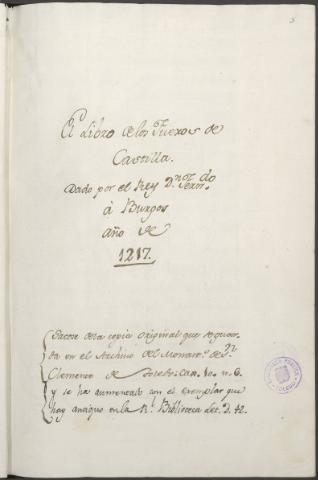 El Libro de los Fueros de
Castilla.
Dado por el Rey D.n Fern.do
à Burgos
año de
1217.
Sacose de la copia original que se guar-
da en el Archivo del Monast.o de S.n
Clemente de Toledo. Caxa. n. 6.
y se ha aumentado con el exemplar que
hay antiguo en la R.l Biblioteca Let. D. 42.